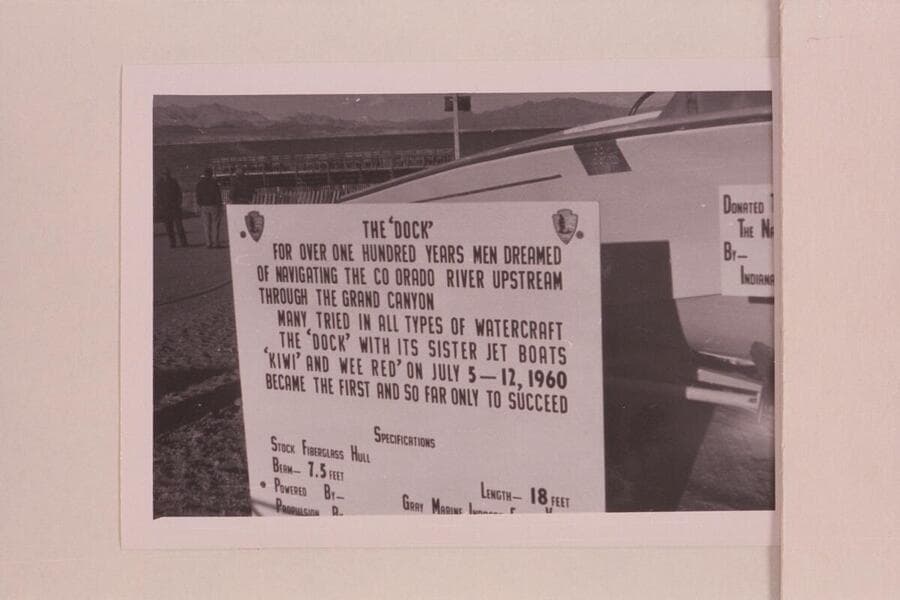 THE 'DOCK'
FOR OVER ONE HUNDRED YEARS MEN DREAMED
OF NAVIGATING THE CO ORADO RIVER UPSTREAM
THROUGH THE GRAND CANYON
MANY TRIED IN ALL TYPES OF WATERCRAFT
THE 'DOCK' WITH ITS SISTER JET BOATS
'KIWI' AND WEE RED' ON JULY 5-12, 1960
BECAME THE FIRST AND SO FAR ONLY TO SUCCEED
SPECIFICATIONS
STOCK FIBERGLASS HULL
BEAM- 7.5 FEET
LENGTH- 18 FEET
POWERED BY-
GRAY MARINE
PROPULSION
DONATED
THE
BY-
INDIANA